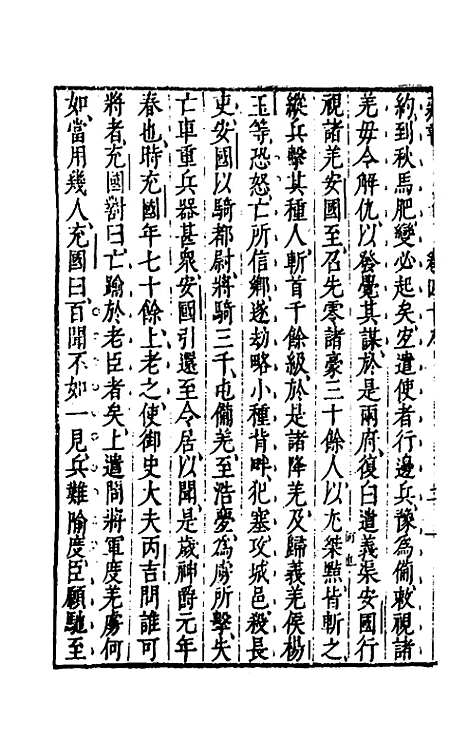 約到秋馬肥變必起矣宜遣使者行邊兵豫爲備敕視諸
羌毋令解仇以發覺其謀於是兩府復白遣義渠安國行
視諸羌安國至召先零諸豪三十餘人以尤桀黠皆斬之
縱兵擊其種人斬首千餘級於是諸降羌及歸義羌侯楊
玉等恐怒亡所信鄉遂劫略小種背畔犯塞攻城邑殺長
吏安國以騎都尉將騎三千屯備羌至浩亹爲虜所擊失
亡車重兵器甚衆安國引還至令居以聞是歲神爵元年
春也時充國年七十餘上老之使御史大夫丙吉問誰可
將者充國對曰亡踰於老臣者矣上遣問將軍度羌虜何
如當用幾人充國曰百聞不如一見兵難隃度臣願馳至